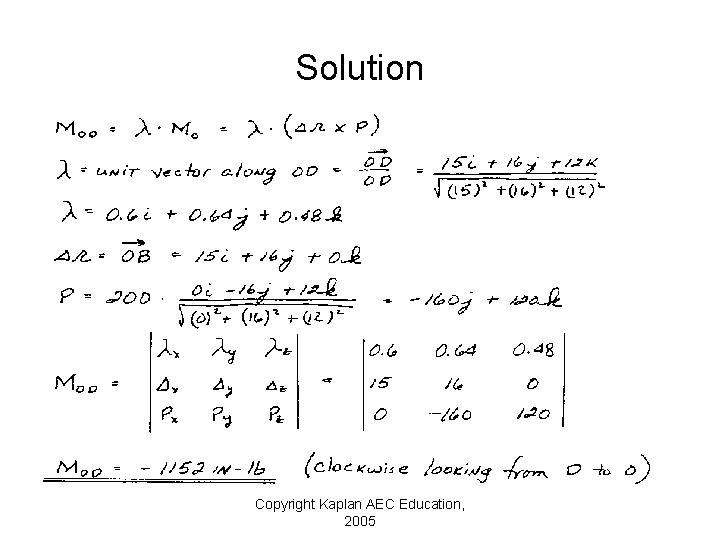 Solution
M_OD = λ · M_O = λ · (ΔR × P)
λ = UNIT vector along OD = →OD / OD = 15i + 16j + 12K / √((15)² + (16)² + (12)²)
λ = 0.6i + 0.64j + 0.48k
ΔR = →OB = 15i + 16j + 0k
P = 200 · 0i - 16j + 12k / √((0)² + (16)² + (12)²) = -160j + 120k
M_OD = | λx λy λz | = | 0.6 0.64 0.48 |
| Δx Δy Δz | | 15 16 0 |
| Px Py Pz | | 0 -160 120 |
M_OD = -1152 IN-lb (clockwise looking from D to O)
Copyright Kaplan AEC Education,
2005